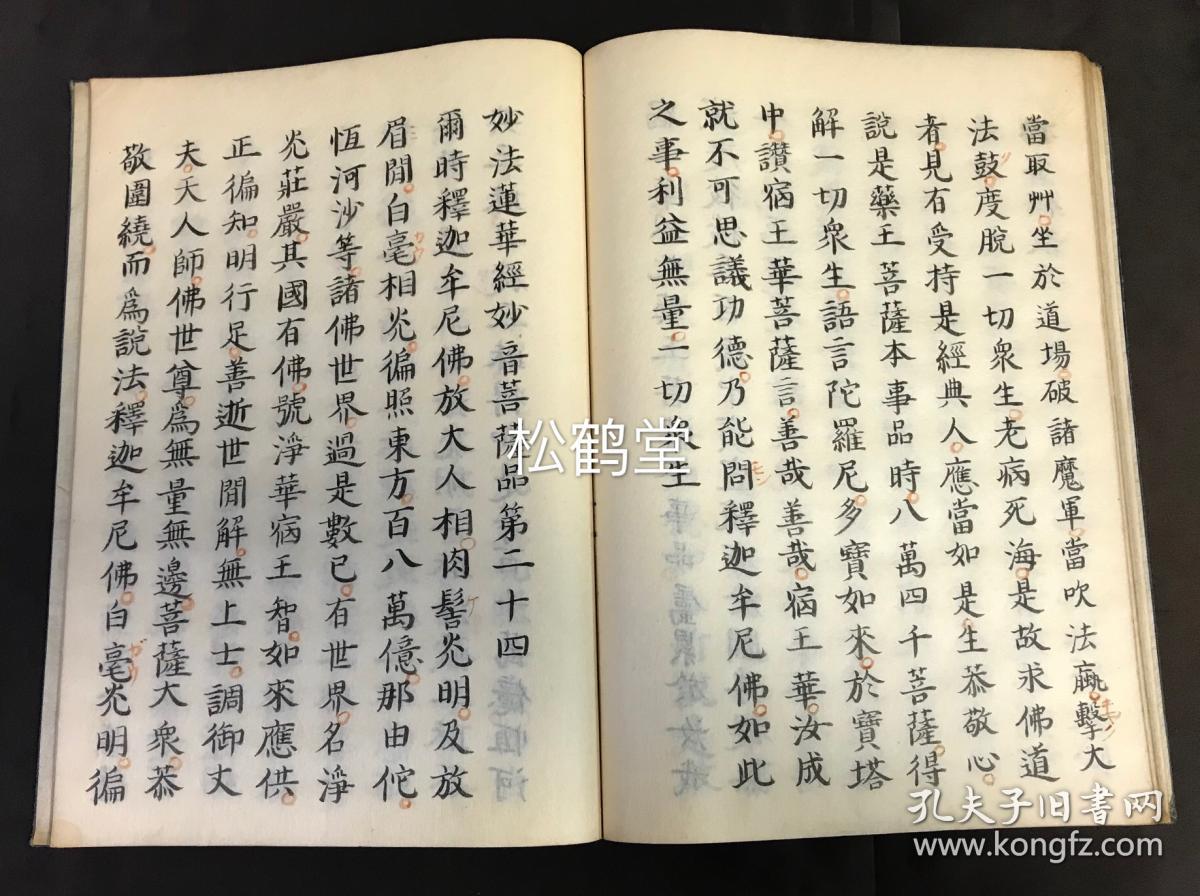 當取艸。坐於道場。破諸魔軍。當吹法蠃。擊大
法鼓。度脫一切衆生。老病死海。是故求佛道
者。見有受持是經典人。應當如是。生恭敬心。
說是藥王菩薩本事品時。八萬四千菩薩。得
解一切衆生。語言陀羅尼。多寶如來。於寶塔
中。讚宿王華菩薩言。善哉善哉。宿王華。汝成
就不可思議功德。乃能問釋迦牟尼佛。如此
之事。利益無量。一切衆生
妙法蓮華經妙音菩薩品第二十四
爾時釋迦牟尼佛。放大人相。肉髻光明。及放
眉閒。白毫相光。徧照東方。百八萬億。那由佗。
恆河沙等。諸佛世界。過是數已。有世界。名淨
光莊嚴。其國有佛。號淨華宿王智。如來應供。
正徧知。明行足。善逝世閒解。無上士。調御丈
夫。天人師。佛世尊。爲無量無邊。菩薩大衆。恭
敬圍繞。而爲說法。釋迦牟尼佛。白毫光明。徧
松鹤堂
孔夫子旧书网
www.kongfz.com